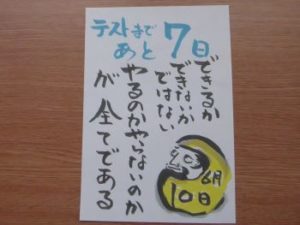 テストまで
あと7日
できるか
できないか
ではない
やるのかやらないのか
が全てである
6月
10日